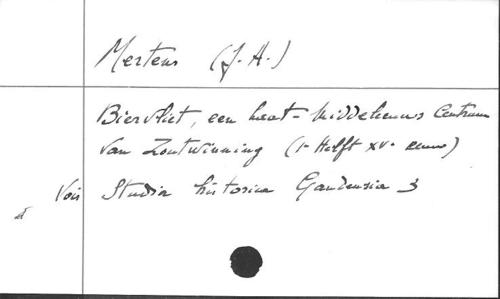 Mertens (J.A.)
Biervliet, een laat-middeleeuws Centrum
van Zoutwinning (1e Helft XVe eeuw)
Voir Studia historica Gandensia 3